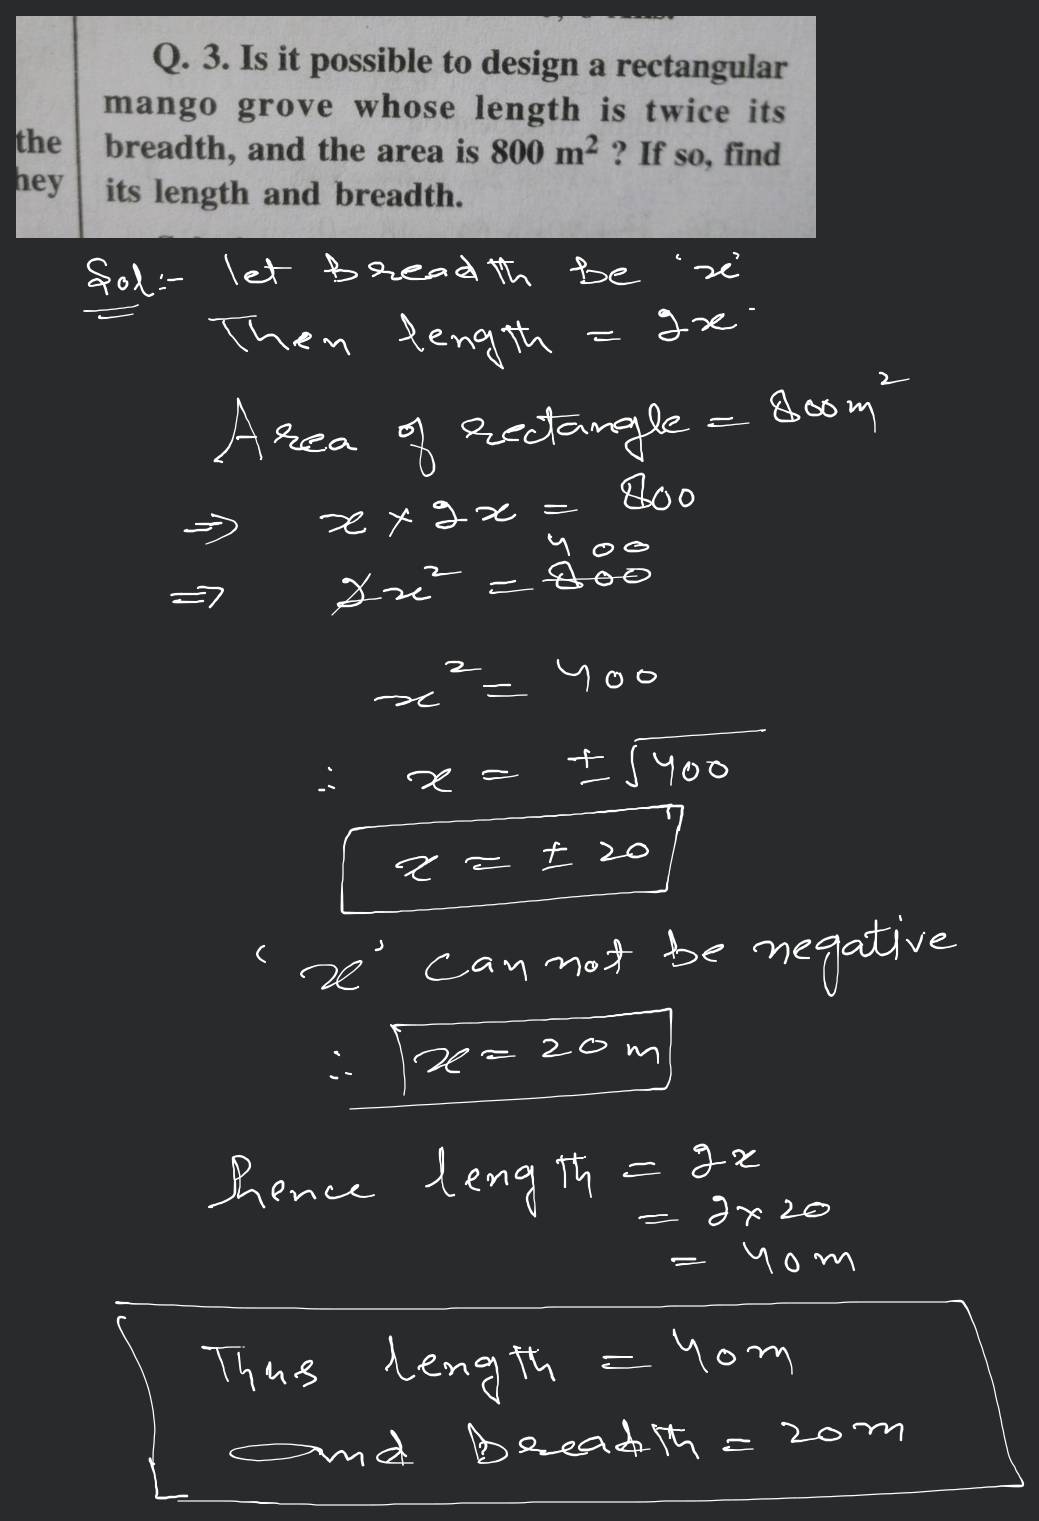 Q. 3. Is it possible to design a rectangular
mango grove whose length is twice its
the breadth, and the area is 800 m² ? If so, find
hey its length and breadth.
Sol:- let Breadth be 'x'
Then length = 2x
Area of rectangle = 800m²
⇒ x × 2x = 800
400
⇒ 2x² = 800
x² = 400
∴ x = ±√400
x = ± 20
'x' can not be negative
∴ x = 20 m
hence length = 2x
= 2×20
= 40m
Thus length = 40m
and breadth = 20m